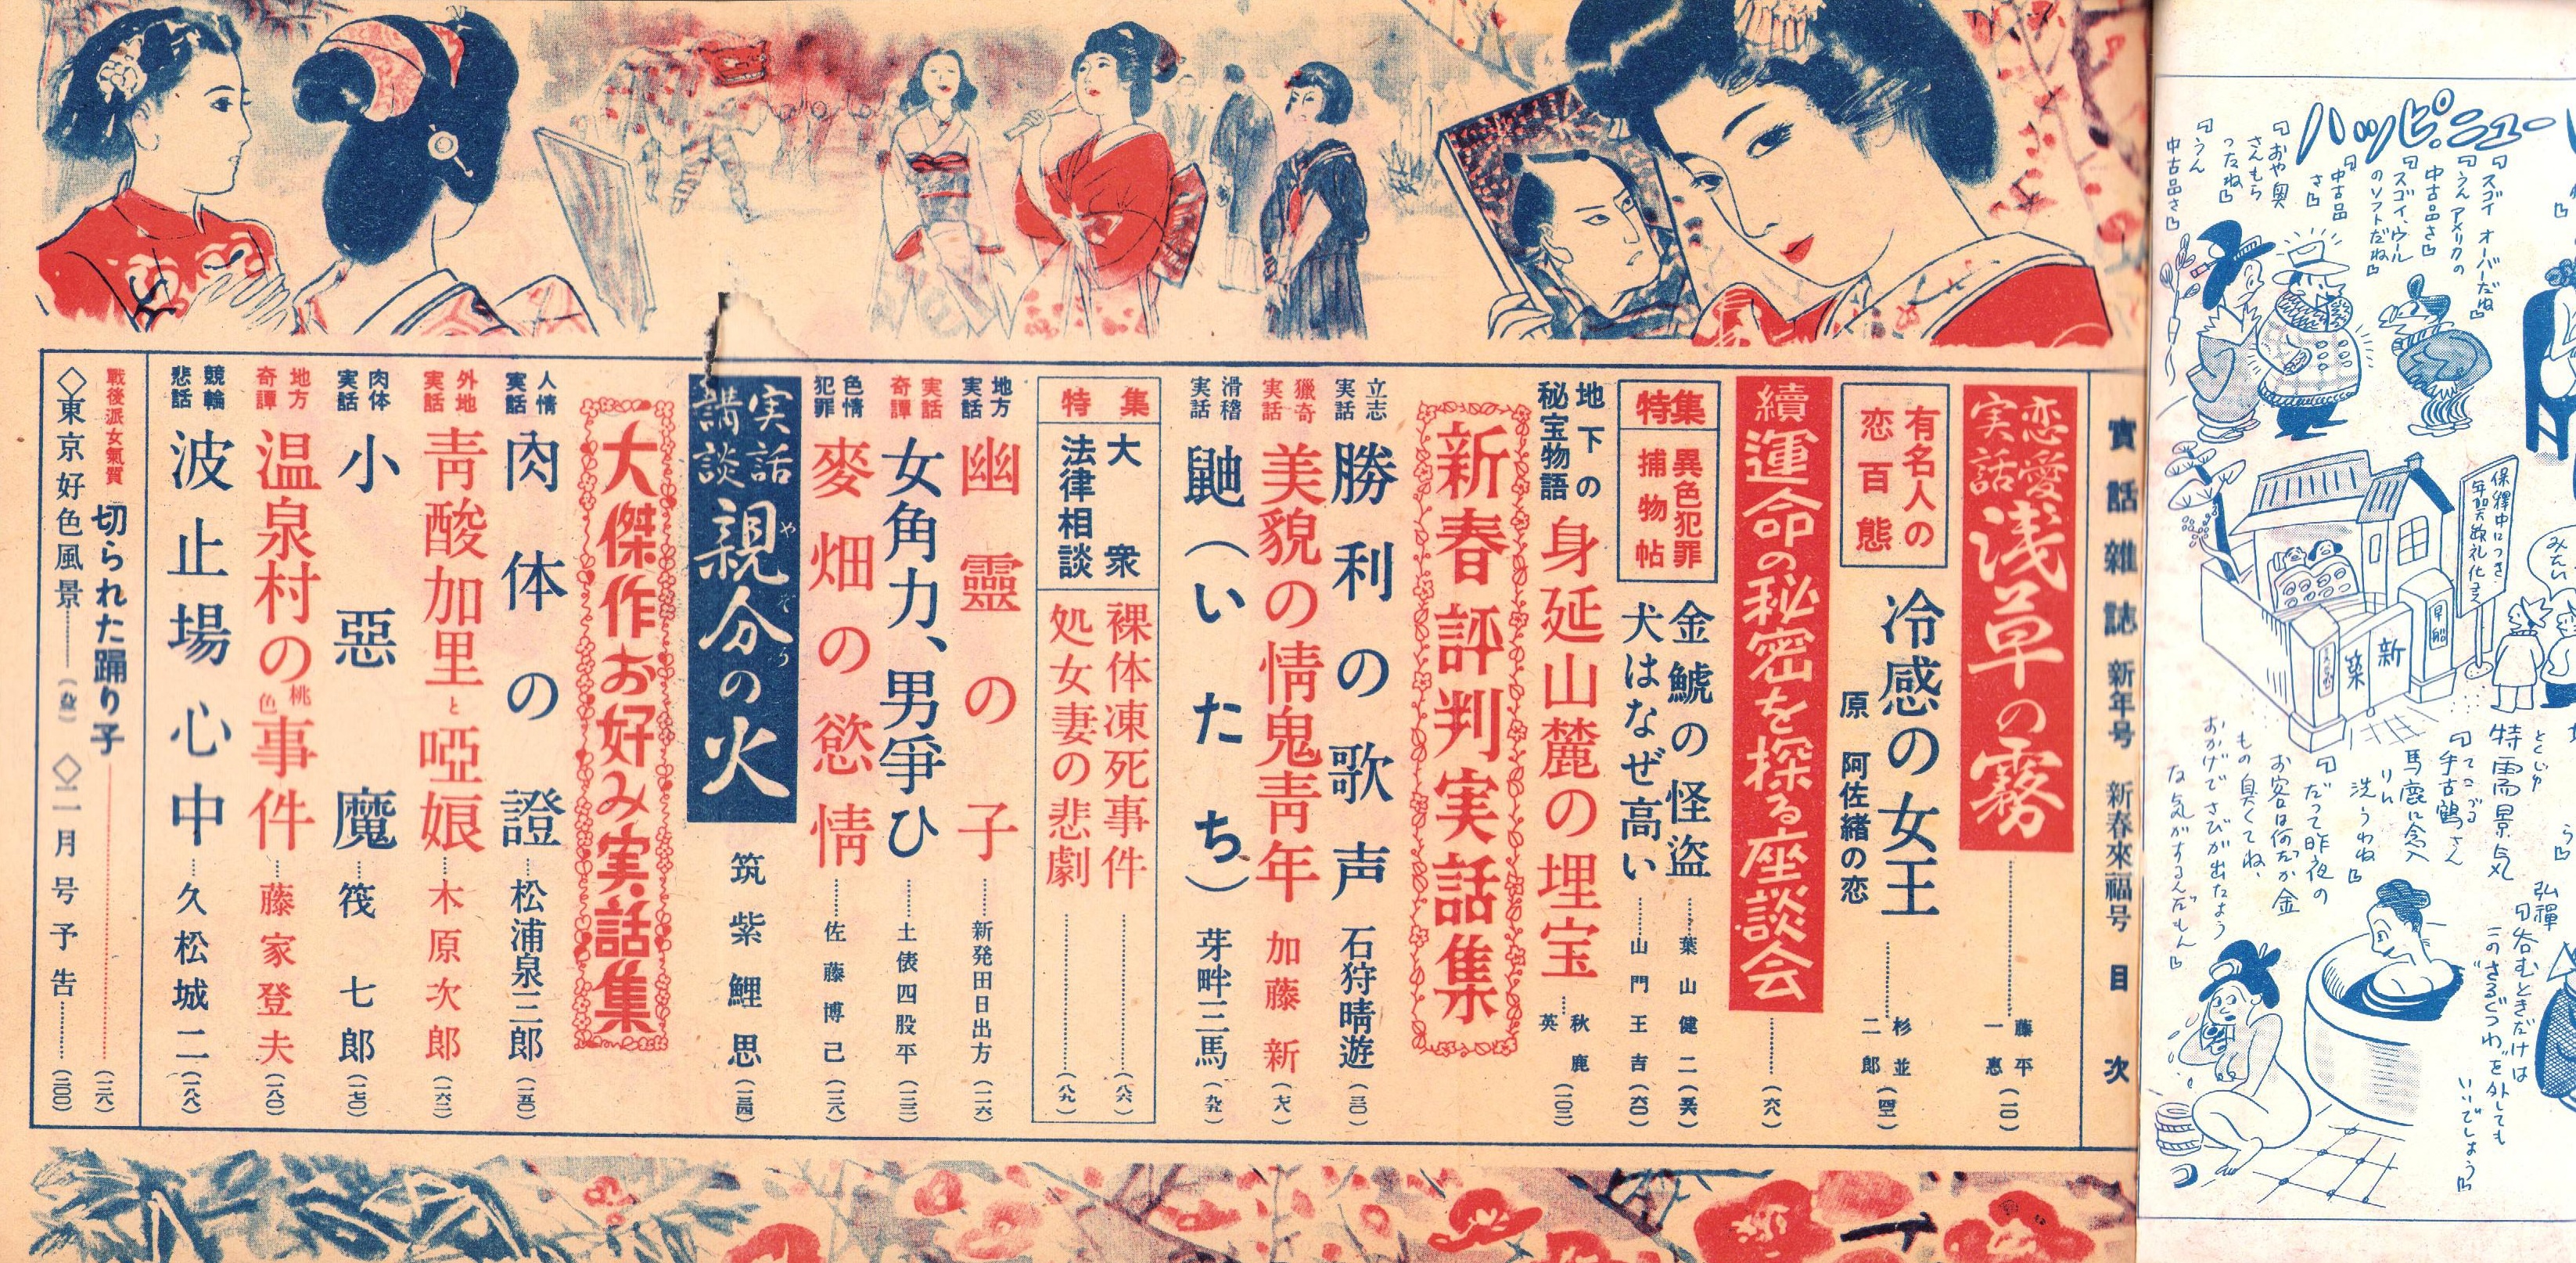 ハッピ.ニュー
『スゴイ オーバーだね』
『うん アメリカの
中古品さ』
『スゴイ、ウール
のソフトだね』
『中古品
さ』
『おや奥
さんもら
ったね』
『うん
中古品さ』
保釋中につき
年賀欠礼仕候
みたい
新
築
弘輝
『呑むときだけは
このさるぐつわを外しても
いいでしょう』
特需景気
とくじゅ
『手古鶴さん
てこづる
馬鹿に念入
りに
洗うわね』
『だって昨夜の
お客は何だか金
もの臭くてね、
おかげでさびが出たよう
な気がするんだもん』
實話雑誌 新年号 新春來福号 目次
恋愛実話 浅草の霧 藤平一惠 (一〇)
有名人の恋百態 冷感の女王 杉並二郎 (四二)
原阿佐緒の恋
續 運命の秘密を探る座談会 (六八)
特集 異色犯罪捕物帖
金鯱の怪盗 葉山健二 (五六)
犬はなぜ高い 山門王吉 (六〇)
地下の秘宝物語 身延山麓の埋宝 秋鹿英 (一〇二)
新春評判実話集
立志実話 勝利の歌声 石狩晴遊 (三〇)
獵奇実話 美貌の情鬼青年 加藤新 (七八)
滑稽実話 鼬(いたち) 芽畔三馬 (九九)
特集 大衆法律相談
裸体凍死事件 (八六)
処女妻の悲劇 (八九)
地方実話 幽靈の子 新発田日出方 (一一六)
実話奇譚 女角力、男爭ひ 土俵四股平 (一二三)
色情犯罪 麥畑の慾情 佐藤博己 (一三八)
実話講談 親分の火 筑紫鯉思
やぞう
大傑作お好み実話集
人情実話 肉体の證 松浦泉三郎 (一五〇)
外地実話 靑酸加里と啞娘 木原次郎 (一六二)
肉体実話 小惡魔 筏七郎 (一七〇)
地方奇譚 温泉村の桃色事件 藤家登夫 (一八〇)
競輪悲話 波止場心中 久松城二 (一八八)
戰後派女氣質 切られた踊り子
◇東京好色風景 ◇二月号予告 (二〇〇)